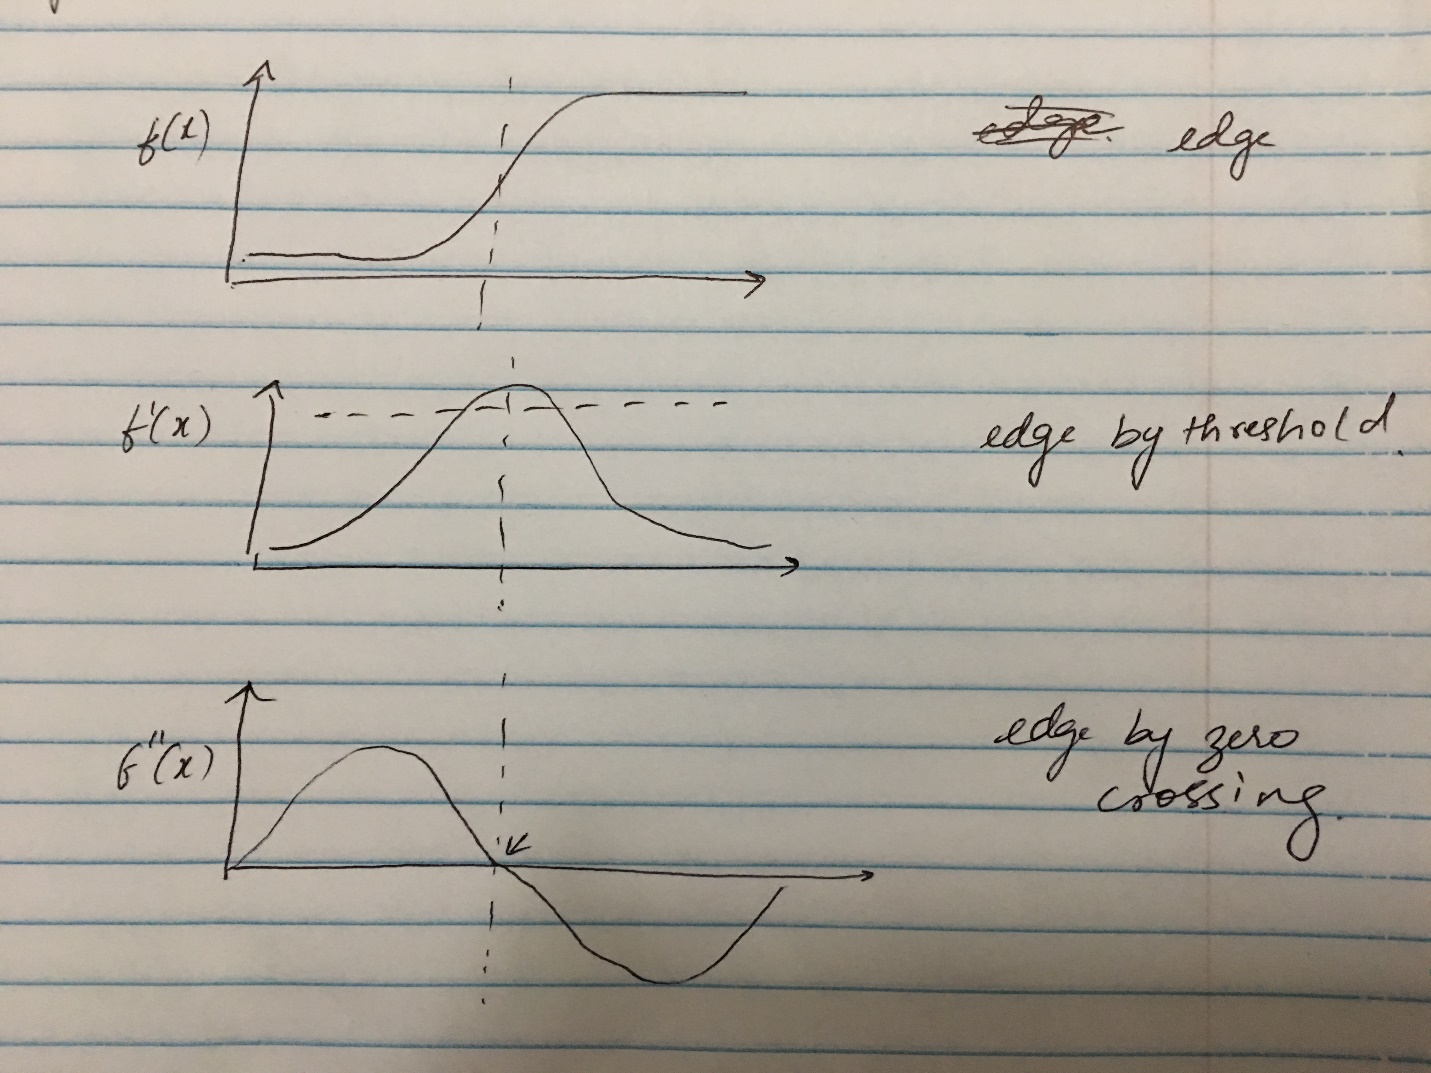 f(x)
edge edge
f'(x)
edge by threshold.
f''(x)
edge by zero
crossing.